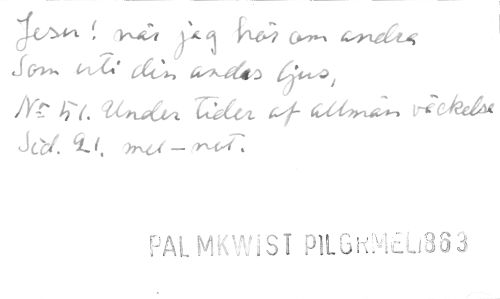 Jesu! när jag hör om andra
Som uti din andas ljus,
No 51. Under tider af allmän väckelse
Sid. 21. mel-not.
PALMKWIST PILGRMEL 1863